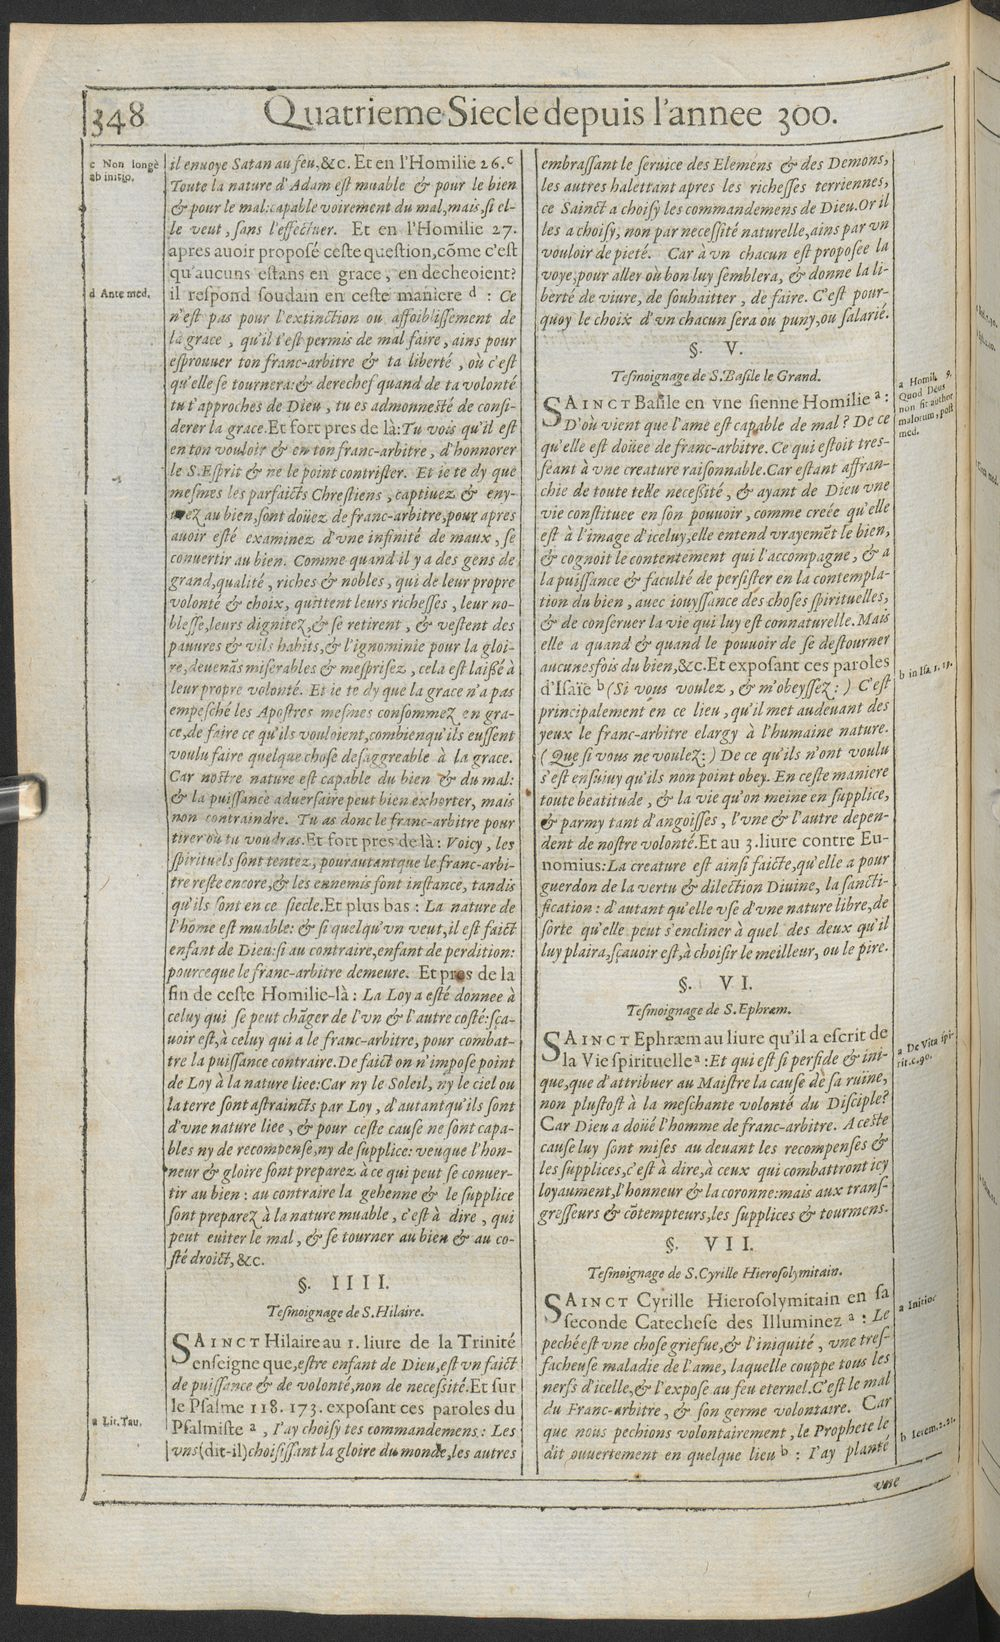 348
Quatrieme Siecle depuis l'annee 300.
c Non longè
ab initio.
d Ante med.
a Lit. Tau.
il enuoye Satan au feu, &c. Et en l'Homilie 26. c
Toute la nature d'Adam est muable & pour le bien
& pour le mal: capable voirement du mal, mais, si el-
le veut, sans l'effectuer. Et en l'Homilie 27.
apres auoir proposé ceste question, cõme c'est
qu'aucuns estans en grace, en decheoient?
il respond soudain en ceste maniere d : Ce
n'est pas pour l'extinction ou affoiblissement de
la grace, qu'il t'est permis de mal faire, ains pour
esprouuer ton franc-arbitre & ta liberté, où c'est
qu'elle se tournera: & derechef quand de ta volonté
tu t'approches de Dieu, tu es admonnesté de consi-
derer la grace. Et fort pres de là: Tu vois qu'il est
en ton vouloir & en ton franc-arbitre, d'honnorer
le S. Esprit & ne le point contrister. Et ie te dy que
mesmes les parfaicts Chrestiens, captiuez & eny-
urez au bien, sont doüez de franc-arbitre, pour apres
auoir esté examinez d'vne infinité de maux, se
conuertir au bien. Comme quand il y a des gens de
grand, qualité, riches & nobles, qui de leur propre
volonté & choix, quittent leurs richesses, leur no-
blesse, leurs dignitez, & se retirent, & vestent des
pauures & vils habits, & l'ignominie pour la gloi-
re, deuenãs miserables & mesprisez, cela est laißé à
leur propre volonté. Et ie te dy que la grace n'a pas
empesché les Apostres mesmes consommez en gra-
ce, de faire ce qu'ils vouloient, combien qu'ils eussent
voulu faire quelque chose desaggreable à la grace.
Car nostre nature est capable du bien & du mal:
& la puissance aduersaire peut bien exhorter, mais
non contraindre. Tu as donc le franc-arbitre pour
tirer où tu voudras. Et fort pres de là : Voicy, les
spirituels sont tentez, pourautant que le franc-arbi-
tre reste encore, & les ennemis font instance, tandis
qu'ils sont en ce siecle. Et plus bas : La nature de
l'hõme est muable: & si quelqu'vn veut, il est faict
enfant de Dieu: si au contraire, enfant de perdition:
pource que le franc-arbitre demeure. Et pres de la
fin de ceste Homilie-là : La Loy a esté donnee à
celuy qui se peut chãger de l'vn & l'autre costé: sça-
uoir est, à celuy qui a le franc-arbitre, pour combat-
tre la puissance contraire. De faict on n'impose point
de Loy à la nature liee: Car ny le Soleil, ny le ciel ou
la terre sont astraincts par Loy, d'autant qu'ils sont
d'vne nature liee, & pour ceste cause ne sont capa-
bles ny de recompense, ny de supplice: veu que l'hon-
neur & gloire sont preparez à ce qui peut se conuer-
tir au bien : au contraire la gehenne & le supplice
sont preparez à la nature muable, c'est à dire, qui
peut euiter le mal, & se tourner au bien & au co-
sté droict, &c.
§. IIII.
Tesmoignage de S. Hilaire.
SAINCT Hilaire au 1. liure de la Trinité
enseigne que, estre enfant de Dieu, est vn faict
de puissance & de volonté, non de necessité. Et sur
le Psalme 118. 173. exposant ces paroles du
Psalmiste a, I'ay choisy tes commandemens : Les
vns (dit-il) choisissant la gloire du monde, les autres
embrassant le seruice des Elemens & des Demons,
les autres halettant apres les richesses terriennes,
ce Sainct a choisy les commandemens de Dieu. Or il
les a choisy, non par necessité naturelle, ains par vn
vouloir de pieté. Car à vn chacun est proposee la
voye, pour aller où bon luy semblera, & donne la li-
berté de viure, de souhaitter, de faire. C'est pour-
quoy le choix d'vn chacun sera ou puny, ou salarié.
§. V.
Tesmoignage de S. Basile le Grand.
SAINCT Basile en vne sienne Homilie a :
D'où vient que l'ame est capable de mal? De ce
qu'elle est doüee de franc-arbitre. Ce qui estoit tres-
seant à vne creature raisonnable. Car estant affran-
chie de toute telle necessité, & ayant de Dieu vne
vie constituee en son pouuoir, comme creée qu'elle
est à l'image d'iceluy, elle entend vrayemẽt le bien,
& cognoit le contentement qui l'accompagne, & a
la puissance & faculté de persister en la contempla-
tion du bien, auec iouyssance des choses spirituelles,
& de conseruer la vie qui luy est connaturelle. Mais
elle a quand & quand le pouuoir de se destourner
aucunesfois du bien, &c. Et exposant ces paroles
d'Isaïe b (Si vous voulez, & m'obeyssez :) C'est
principalement en ce lieu, qu'il met audeuant des
yeux le franc-arbitre elargy à l'humaine nature.
(Que si vous ne voulez :) De ce qu'ils n'ont voulu
s'est ensuiuy qu'ils non point obey. En ceste maniere
toute beatitude, & la vie qu'on meine en supplice,
& parmy tant d'angoisses, l'vne & l'autre depen-
dent de nostre volonté. Et au 3. liure contre Eu-
nomius: La creature est ainsi faicte, qu'elle a pour
guerdon de la vertu & dilection Diuine, la sancti-
fication : d'autant qu'elle vse d'vne nature libre, de
sorte qu'elle peut s'encliner à quel des deux qu'il
luy plaira, sçauoir est, à choisir le meilleur, ou le pire.
§. VI.
Tesmoignage de S. Ephræm.
SAINCT Ephræm au liure qu'il a escrit de
la Vie spirituelle a : Et qui est si perfide & ini-
que, que d'attribuer au Maistre la cause de sa ruine,
non plustost à la meschante volonté du Disciple?
Car Dieu a doüé l'homme de franc-arbitre. A ceste
cause luy sont mises au deuant les recompenses &
les supplices, c'est à dire, à ceux qui combattront icy
loyaument, l'honneur & la coronne: mais aux trans-
gresseurs & cõtempteurs, les supplices & tourmens.
§. VII.
Tesmoignage de S. Cyrille Hierosolymitain.
SAINCT Cyrille Hierosolymitain en sa
seconde Catechese des Illuminez a : Le
peché est vne chose griefue, & l'iniquité, vne tres-
facheuse maladie de l'ame, laquelle couppe tous les
nerfs d'icelle, & l'expose au feu eternel. C'est le mal
du Franc-arbitre, & son germe volontaire. Car
que nous pechions volontairement, le Prophete le
dit ouuertement en quelque lieu b : I'ay planté
vne
a Homil. 9.
Quod Deus
non sit author
malorum, post
med.
b in Isa. 1. 19.
a De Vita spi-
rit. c. 90.
a Initio.
b Ierem. 2. 21.